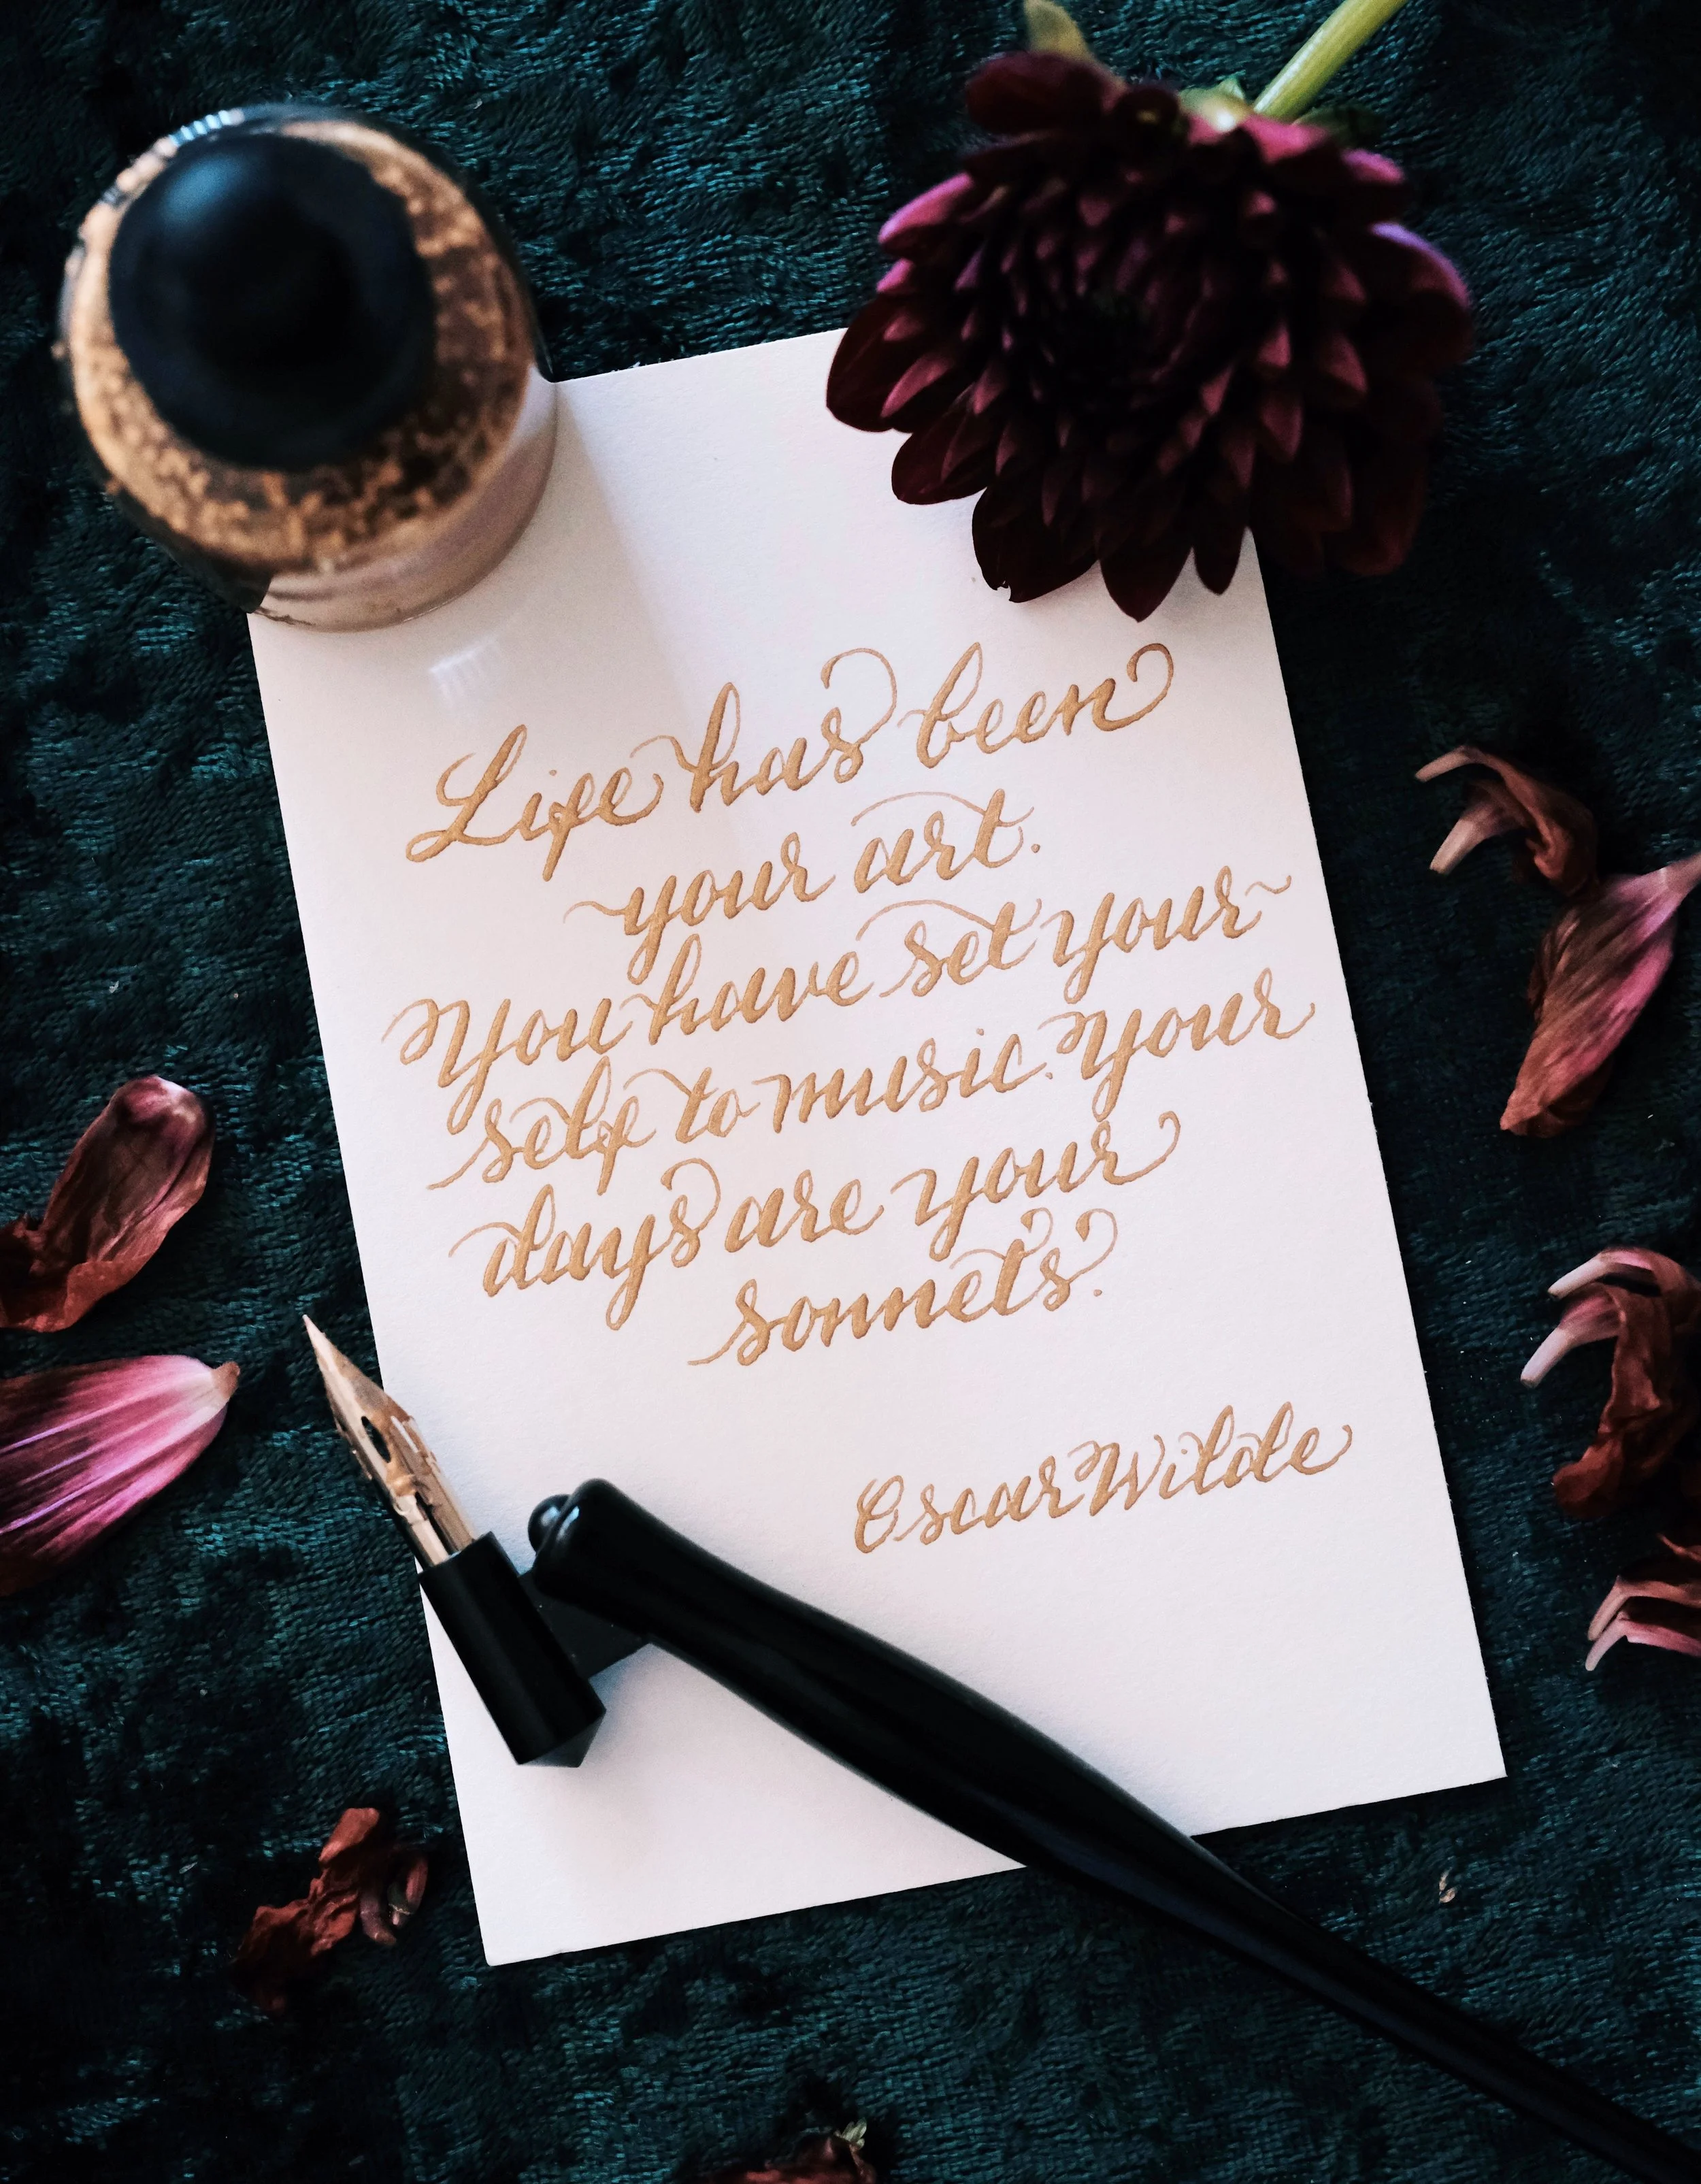 Life has been
your art.
You have set your~
self to music. Your
days are your
sonnets''.
Oscar Wilde